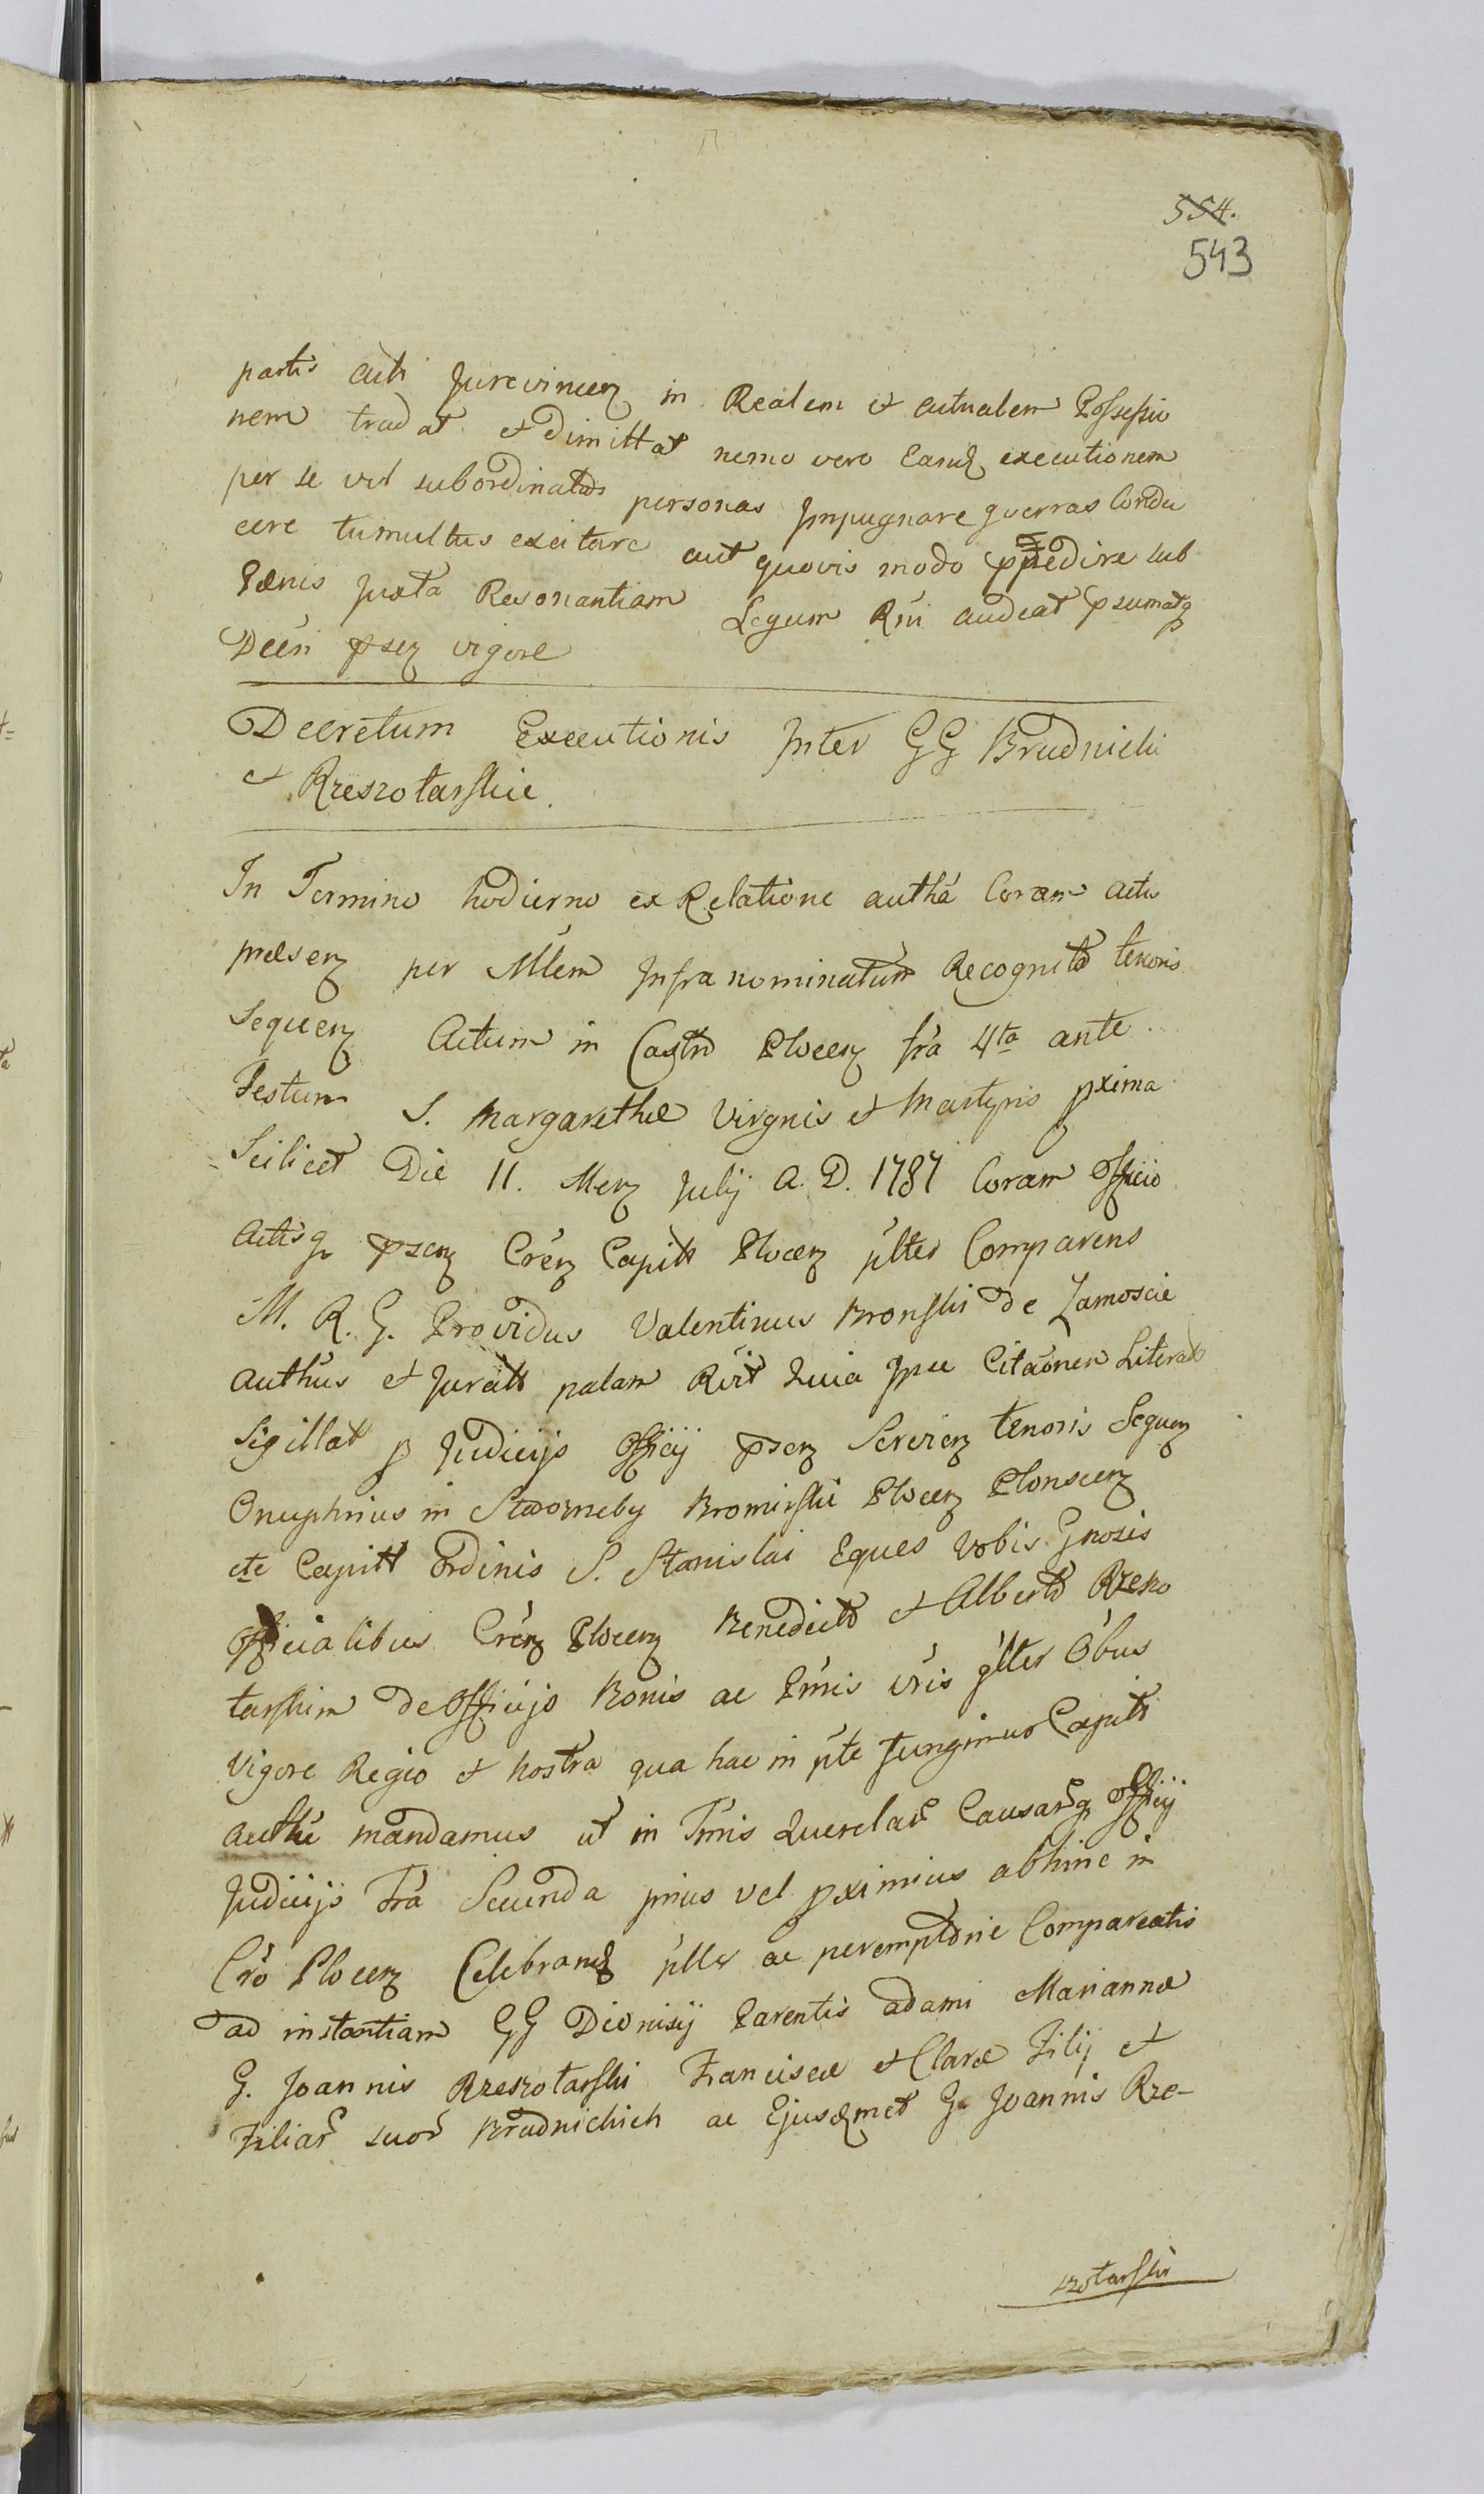 554.
543
partis acti Jurevincen in Realem et actualem Possessio
nem tradat et dimittat nemo vero Eand executionem
per se vel subordinatas personas Impugnare guerras Condu
cere tumultus excitare aut quovis modo ppedire sub
Pænis Juxta Resonantiam Legum Rni audeat psumatq
Decri psen vigore
Decretum Executionis Inter GG Brudnicki
et Rzeszotarskie.
In Termino hodierno ex Relatione authca Coram actis
præsen per Mtem Infra nominatum Recognita tenoris
Sequen Actum in Castro Plocen fra 4ta ante
Festum S. Margarethæ Virgnis et Martyris pxima
Scilicet Die 11. Men Julij A. D. 1787 Coram Officio
Actisq psen Cren Capitt Plocen pltes Comparens
M. R. G. Providus Valentinus Bronski de Zamoscie
Authus et Juratt palam Rvit Quia Ipse Citaonem Literat
Sigillat p Judicijs Officij psen Servien tenoris Sequen
Onuphrius in Skworneby Bromirski Plocen Plonscen
etc Capitt Ordinis S. Stanislai Eques Vobis Gnosis
Officialibus Cren Plocen Benedicto et Alberto Rzeszo
tarskim de Officijs Bonis ac Pmis vris gltes Obus
Vigore Regio et nostra qua hac in pte fungimur Capitt
authe mandamus ut in Tmis Querelar Causarq Officij
Judicijs Fra Secunda prius vel pximius abhinc in
Cro Plocen Celebrand pltes ac peremptorie Compareatis
ad instantiam GG Dionisij Parentis Adami Mariannæ
G. Joannis Rzeszotarski Franciscæ et Claræ Filij et
Filiar suor Brudnickich ac Ejusdmet G. Joannis Rze-
szotarski